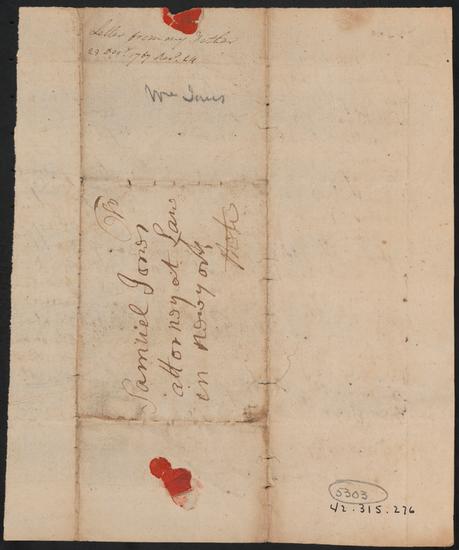 Letter from my Father
23 Decr. 1767 Recd. 24
Wm Jones
To
Samuel Jones
attorney at Law
in newyork
5303
42.315.276